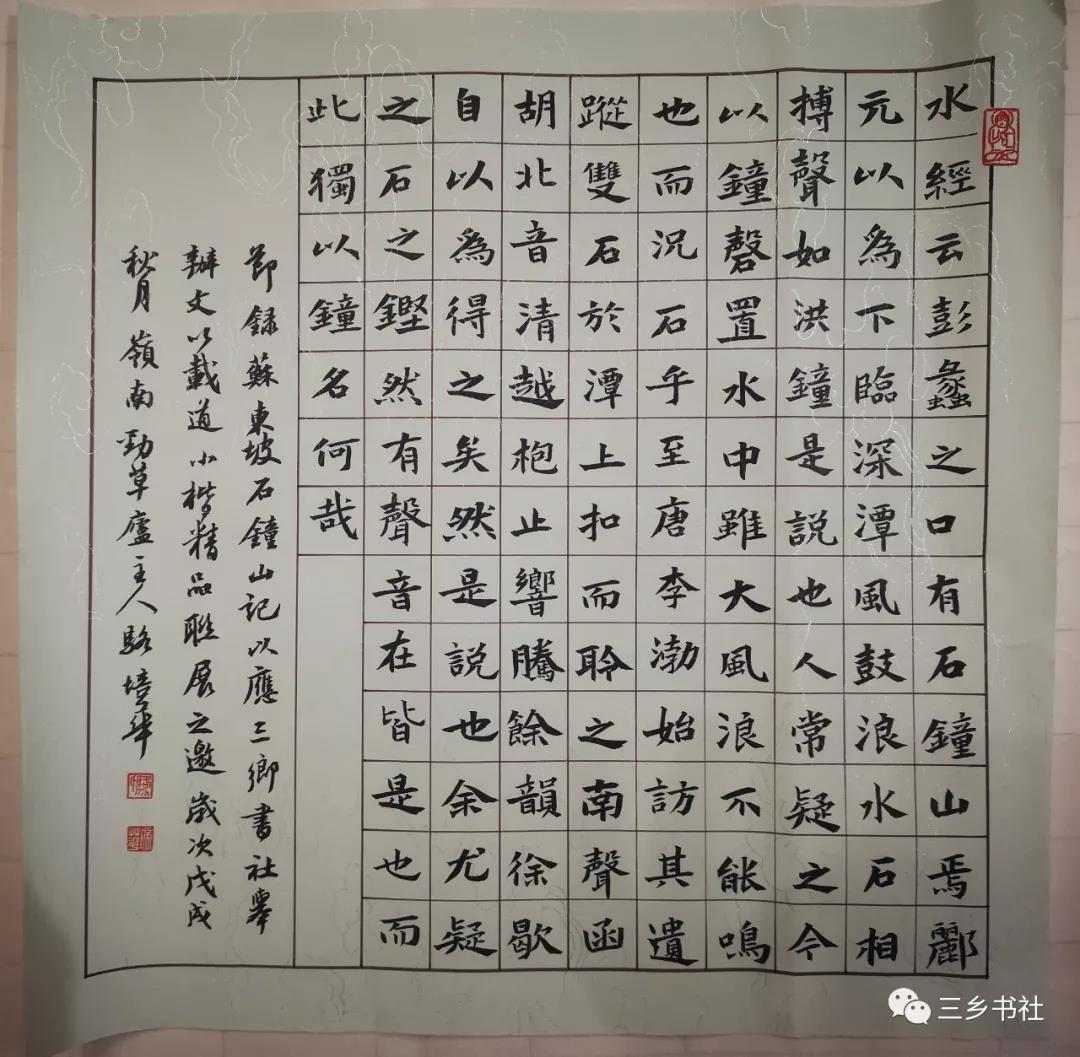 水經云彭蠡之口有石鐘山焉酈
元以為下臨深潭風鼓浪水石相
搏聲如洪鐘是説也人常疑之今
以鐘磬置水中雖大風浪不能鳴
也而況石乎至唐李渤始訪其遺
蹤雙石於潭上扣而聆之南聲函
胡北音清越枹止響騰餘韻徐歇
自以為得之矣然是説也余尤疑
之石之鏗然有聲音在皆是也而
此獨以鐘名何哉
節録蘇東坡石鐘山記以應三鄉書社舉
辦文以載道小楷精品聯展之邀歲次戊戌
秋月嶺南勁草廬主人駱培華
三乡书社